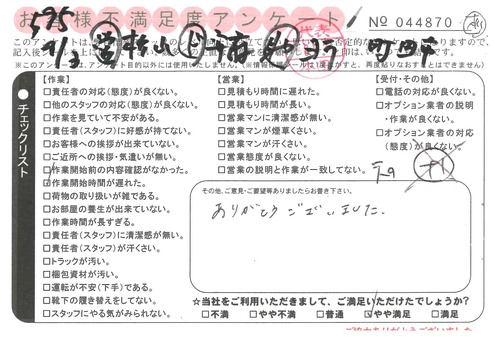 お客様不満足度アンケート
No 044870
チェックリスト
【作業】
□責任者の対応(態度)が良くない。
□他のスタッフの対応(態度)が良くない。
□作業を見ていて不安がある。
□責任者(スタッフ)に好感が持てない。
□お客様への挨拶が出来ていない。
□ご近所への挨拶・気遣いが無い。
□作業開始前の内容確認がなかった。
□作業開始時間が遅れた。
□荷物の取り扱いが雑である。
□お部屋の養生が出来ていない。
□作業時間が長すぎる。
□責任者(スタッフ)に清潔感が無い。
□責任者(スタッフ)が汗くさい。
□トラックが汚い。
□梱包資材が汚い。
□運転が不安(下手)である。
□靴下の履き替えをしてない。
□スタッフにやる気がみられない。
【営業】
□見積もり時間に遅れた。
□見積もり時間が長い。
□営業マンに清潔感が無い。
□営業マンが煙草くさい。
□営業マンが汗くさい。
□営業態度が良くない。
□営業の説明と作業が一致してない。
【受付・その他】
□電話の対応が良くない。
□オプション業者の説明
・作業が良くない。
□オプション業者の対応
(態度)が良くない。
その他、ご意見・ご要望等ありましたらお書き下さい。
ありがとうございました。
☆当社をご利用いただきまして、ご満足いただけたでしょうか?
□不満 □やや不満 □普通 □やや満足 □満足